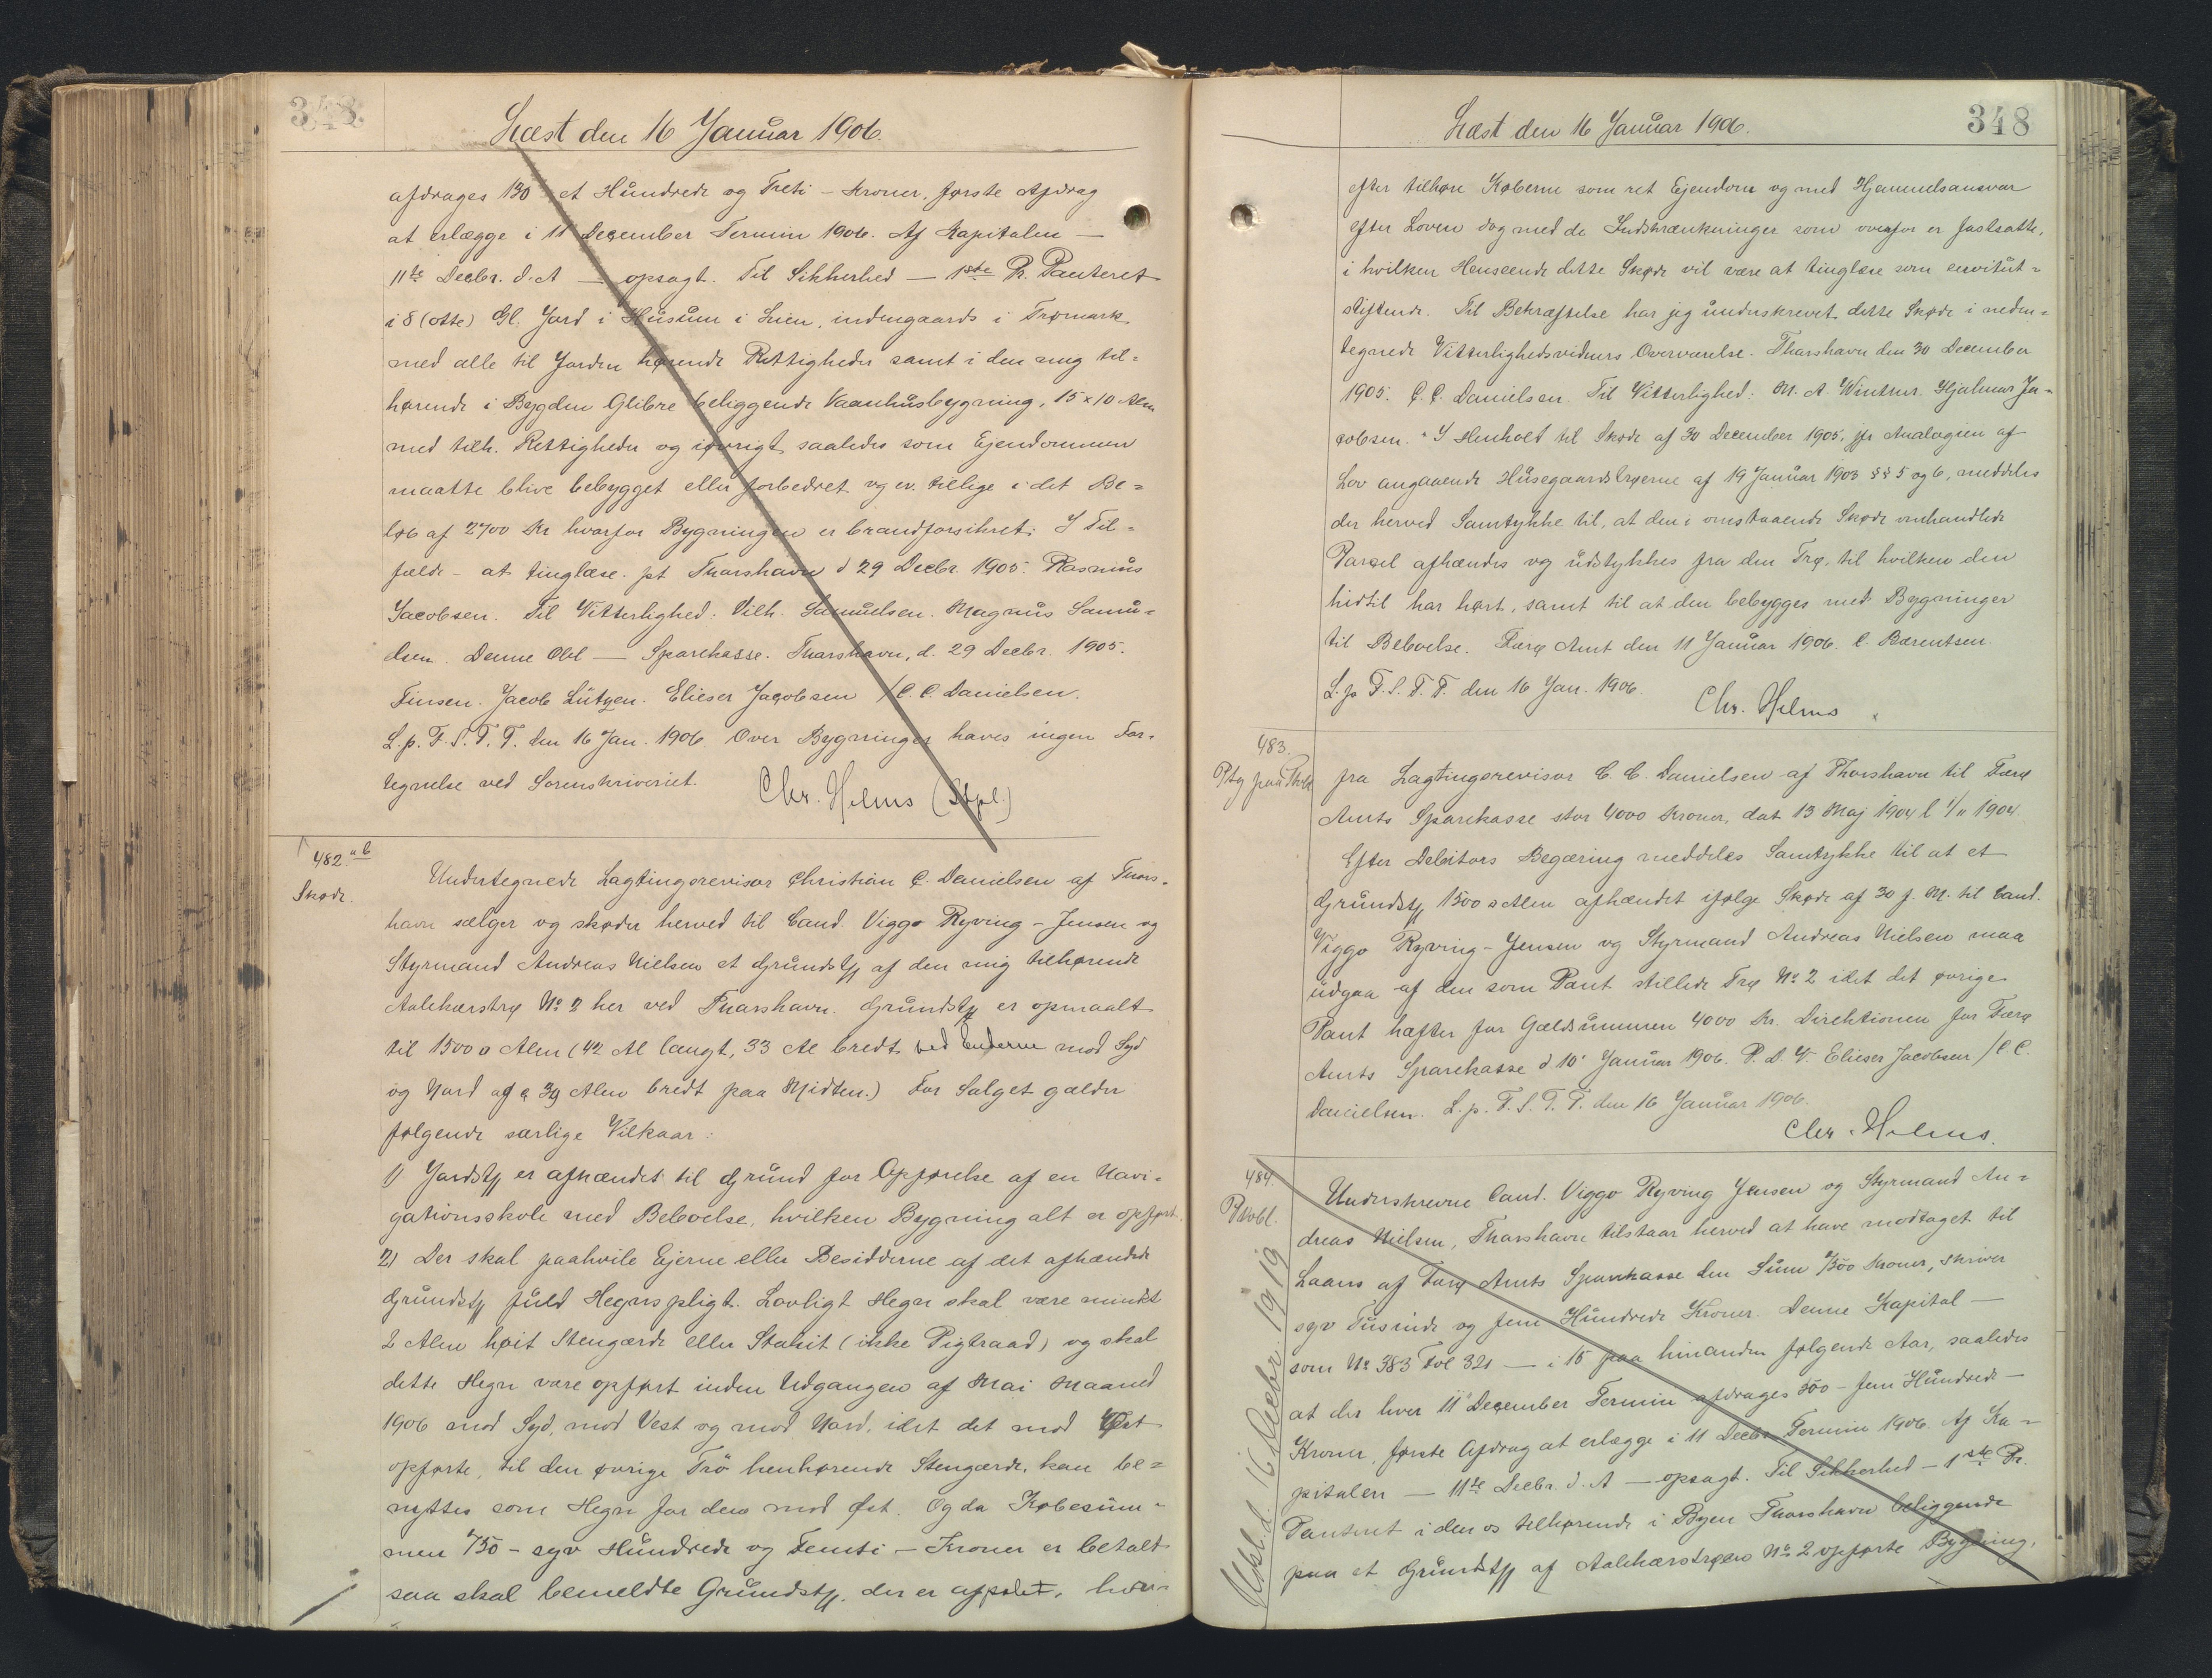 348
Læst den 16 Januar 1906.
afdrages 130 et Hundrede og Treti - Kroner, første Afdrag
at erlægge i 11 December Termin 1906. Af Kapitalen —
11te Decbr. d. A — opsagt. Til Sikkerhed — 1ste Pr. Panteret
i 8 (otte) Gl. Jord i Husum i Leen, indengaards i Trømark
med alle til Jorden hørende Rettigheder samt i den mig til=
hørende i Bygden Glibre beliggende Vaanhusbygning, 15 x 10 Alen
med tilh. Rettigheder og iøvrigt saaledes som Ejendommen
maatte blive bebygget eller forbedret og ev. tillige i det Be=
løb af 2700 Kr hvorfor Bygningen er brandforsikret. I Til=
fælde - at tinglæse. pt Thorshavn d 29 Decbr. 1905. Rasmus
Jacobsen. Til Vitterlighed: Vilh. Samuelsen. Magnus Samu=
elsen. Denne Obl — Sparekasse. Thorshavn, d. 29 Decbr. 1905.
Finsen. Jacob Lützen. Elieser Jacobsen / C. C. Danielsen.
L. p. F. S. T. T. den 16 Jan. 1906. Over Bygninger haves ingen For=
tegnelse ved Sorenskriveriet.
Chr. Helms (Stpl.)
482. ab
Skøde.
Undertegnede Lagtingsrevisor Christian C. Danielsen af Thors=
havn sælger og skøder herved til Cand. Viggo Ryving - Jensen og
Styrmand Andreas Nielsen et Grundst. af den mig tilhørende
Aalekærstrø No 2 her ved Thorshavn. Grundst. er opmaalt
til 1500 □ Alen (42 Al langt, 33 Al bredt ved Enderne mod Syd
og Nord og 39 Alen bredt paa Midten.) For Salget gælder
følgende særlige Vilkaar:
1) Jordst. er afhændet til Grund for Opførelse af en Navi=
gationsskole med Beboelse, hvilken Bygning alt er opført.
2) Der skal paahvile Ejerne eller Besidderne af det afhændede
Grundst. fuld Hegnspligt. Lovligt Hegn skal være mindst
2 Alen høit Stengærde eller Stakit (ikke Pigtraad) og skal
dette Hegn være opført inden Udgangen af Mai Maaned
1906 mod Syd, mod Vest og mod Nord, idet det mod Øst
opførte, til den øvrige Trö henhørende Stengærde, kan be=
nyttes som Hegn for den mod Øst. Og da Købesum=
men 750 - syv Hundrede og Femti - Kroner er betalt
saa skal bemeldte Grundst., der er afpælet, her=
348
Læst den 16 Januar 1906.
efter tilhøre Køberne som ret Ejendom og med Hjemmelsansvar
efter Loven dog med de Indskrænkninger som ovenfor er fastsatte,
i hvilken Henseende dette Skøde vil være at tinglæse som servitut=
stiftende. Til Bekræftelse har jeg underskrevet dette Skøde i neden=
tegnede Vitterlighedsvidners Overværelse. Thorshavn den 30 December
1905. C. C. Danielsen. Til Vitterlighed: M. A. Winther. Hjalmar Ja=
cobsen. " I Henhold til Skøde af 30 December 1905, jfr Analogien af
Lov angaaende Husegaardstrøerne af 19 Januar 1903 §§ 5 og 6, meddeles
der herved Samtykke til, at den i omstaaende Skøde omhandlede
Parcel afhændes og udstykkes fra den Trø, til hvilken den
hidtil har hørt, samt til at den bebygges med Bygninger
til Beboelse. Færø Amt den 11 Januar 1906. C. Bærentsen.
L. p F. S. T. T. den 16 Jan. 1906.
Chr. Helms
483.
Ptg paa
fra Lagtingsrevisor C. C. Danielsen af Thorshavn til Færø
Amts Sparekasse stor 4000 Kroner, dat 13 Maj 1904 l 1/11 1904.
Efter Debitors Begæring meddeles Samtykke til at et
Grundst. 1500 □ Alen afhændet ifølge Skøde af 30 f. M. til Cand.
Viggo Ryving - Jensen og Styrmand Andreas Nielsen maa
udgaa af den som Pant stillede Trø No 2 idet det øvrige
Pant hæfter for Gældsummen 4000 Kr. Direktionen for Færø
Amts Sparekasse d 10' Januar 1906. P. D. V. Elieser Jacobsen / C. C.
Danielsen. L. p. F. S. T. T. den 16 Januar 1906.
Chr. Helms.
484.
Pantobl.
Underskrevne Cand. Viggo Ryving Jensen og Styrmand An=
dreas Nielsen, Thorshavn tilstaar herved at have modtaget til
Laans af Færø Amts Sparekasse den Sum 7500 Kroner, skriver
syv Tusinde og fem Hundrede Kroner. Denne Kapital —
som No 383 Fol 321 — i 15 paa hinanden følgende Aar, saaledes
at der hver 11' December Termin afdrages 500 - fem Hundrede —
Kroner, første Afdrag at erlægge i 11 Decbr Termin 1906. Af Ka=
pitalen — 11te Decbr. d. A — opsagt. Til Sikkerhed — 1ste Pr.
Panteret i den os tilhørende i Byen Thorshavn beliggende
paa et Grundst. af Aalekærstrøen No 2 opførte Bygning,
Udsl. d. 16 Decbr. 1919